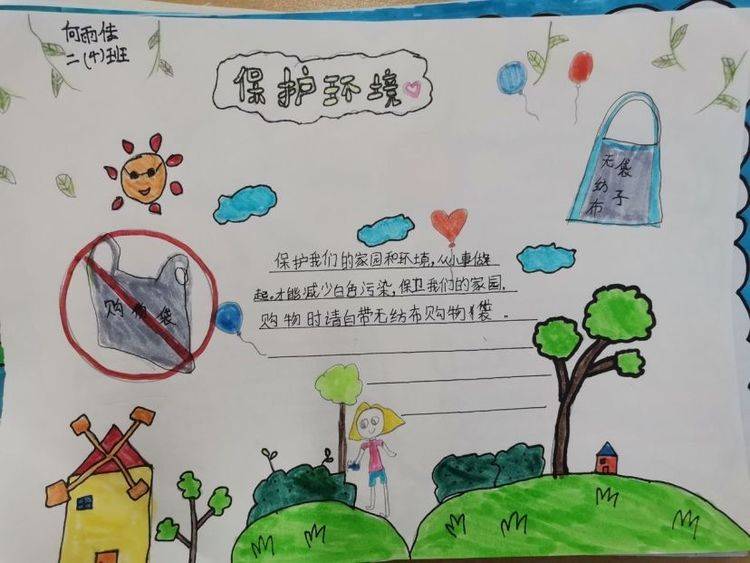 何雨佳
二(4)班
保护环境
无袋
纺子
布
购物袋
保护我们的家园和环境,从小事做
起.才能减少白色污染,保卫我们的家园.
购物时请自带无纺布购物袋。